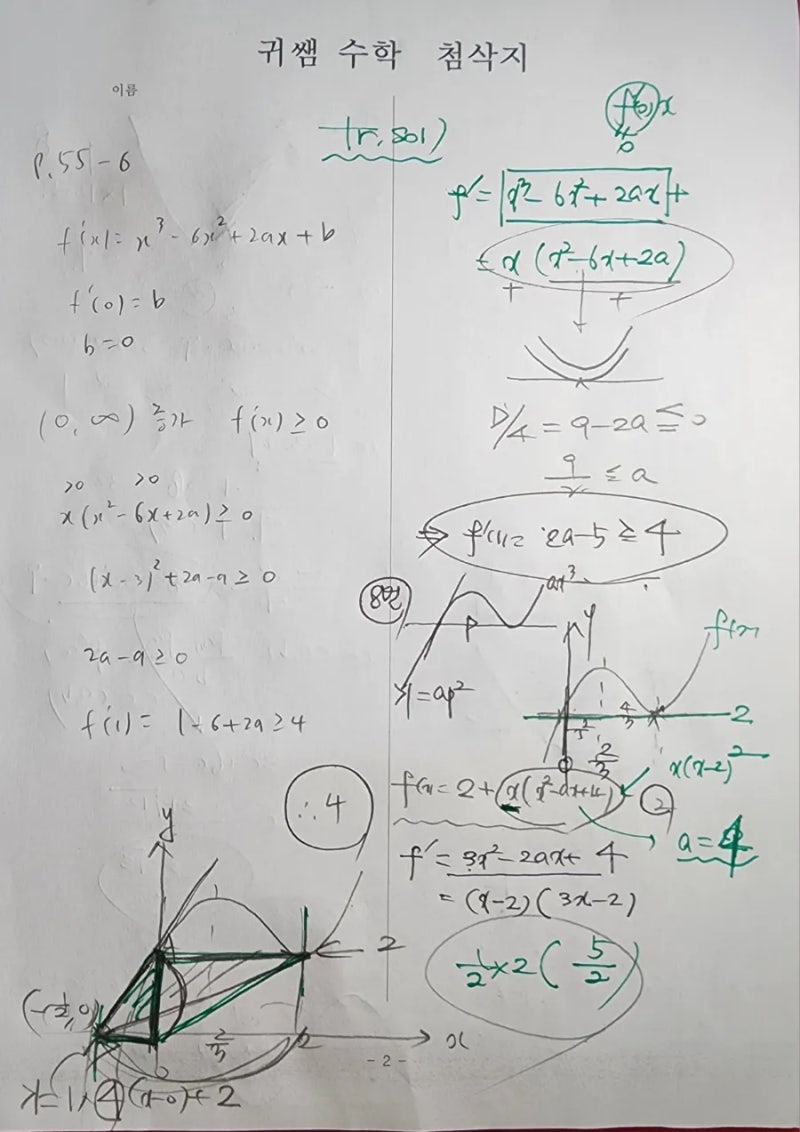 귀쌤 수학 첨삭지
이름
P.55-6
f'(x)=x³-6x²+2ax+b
f'(0)=b
b=0
(0,∞) 증가 f'(x)≥0
>0 >0
x(x²-6x+2a)≥0
(x-3)²+2a-9≥0
2a-9≥0
f'(1)=1-6+2a≥4
∴4
y
2
(-1/2,0)
2/3
2
x
4(x-0)+2
tr.sol)
f'=x³-6x²+2ax+
=x(x²-6x+2a)
+ +
D/4=9-2a≤0
≤a
⇒ f'(1)=2a-5≥4
8번
ax³
P
y
f(x)
2
4/3
2/3
f(x)=2+x(x²-ax+4)
x(x-2)²
2
a=4
f'=3x²-2ax+4
=(x-2)(3x-2)
1/2×2(5/2)
- 2 -